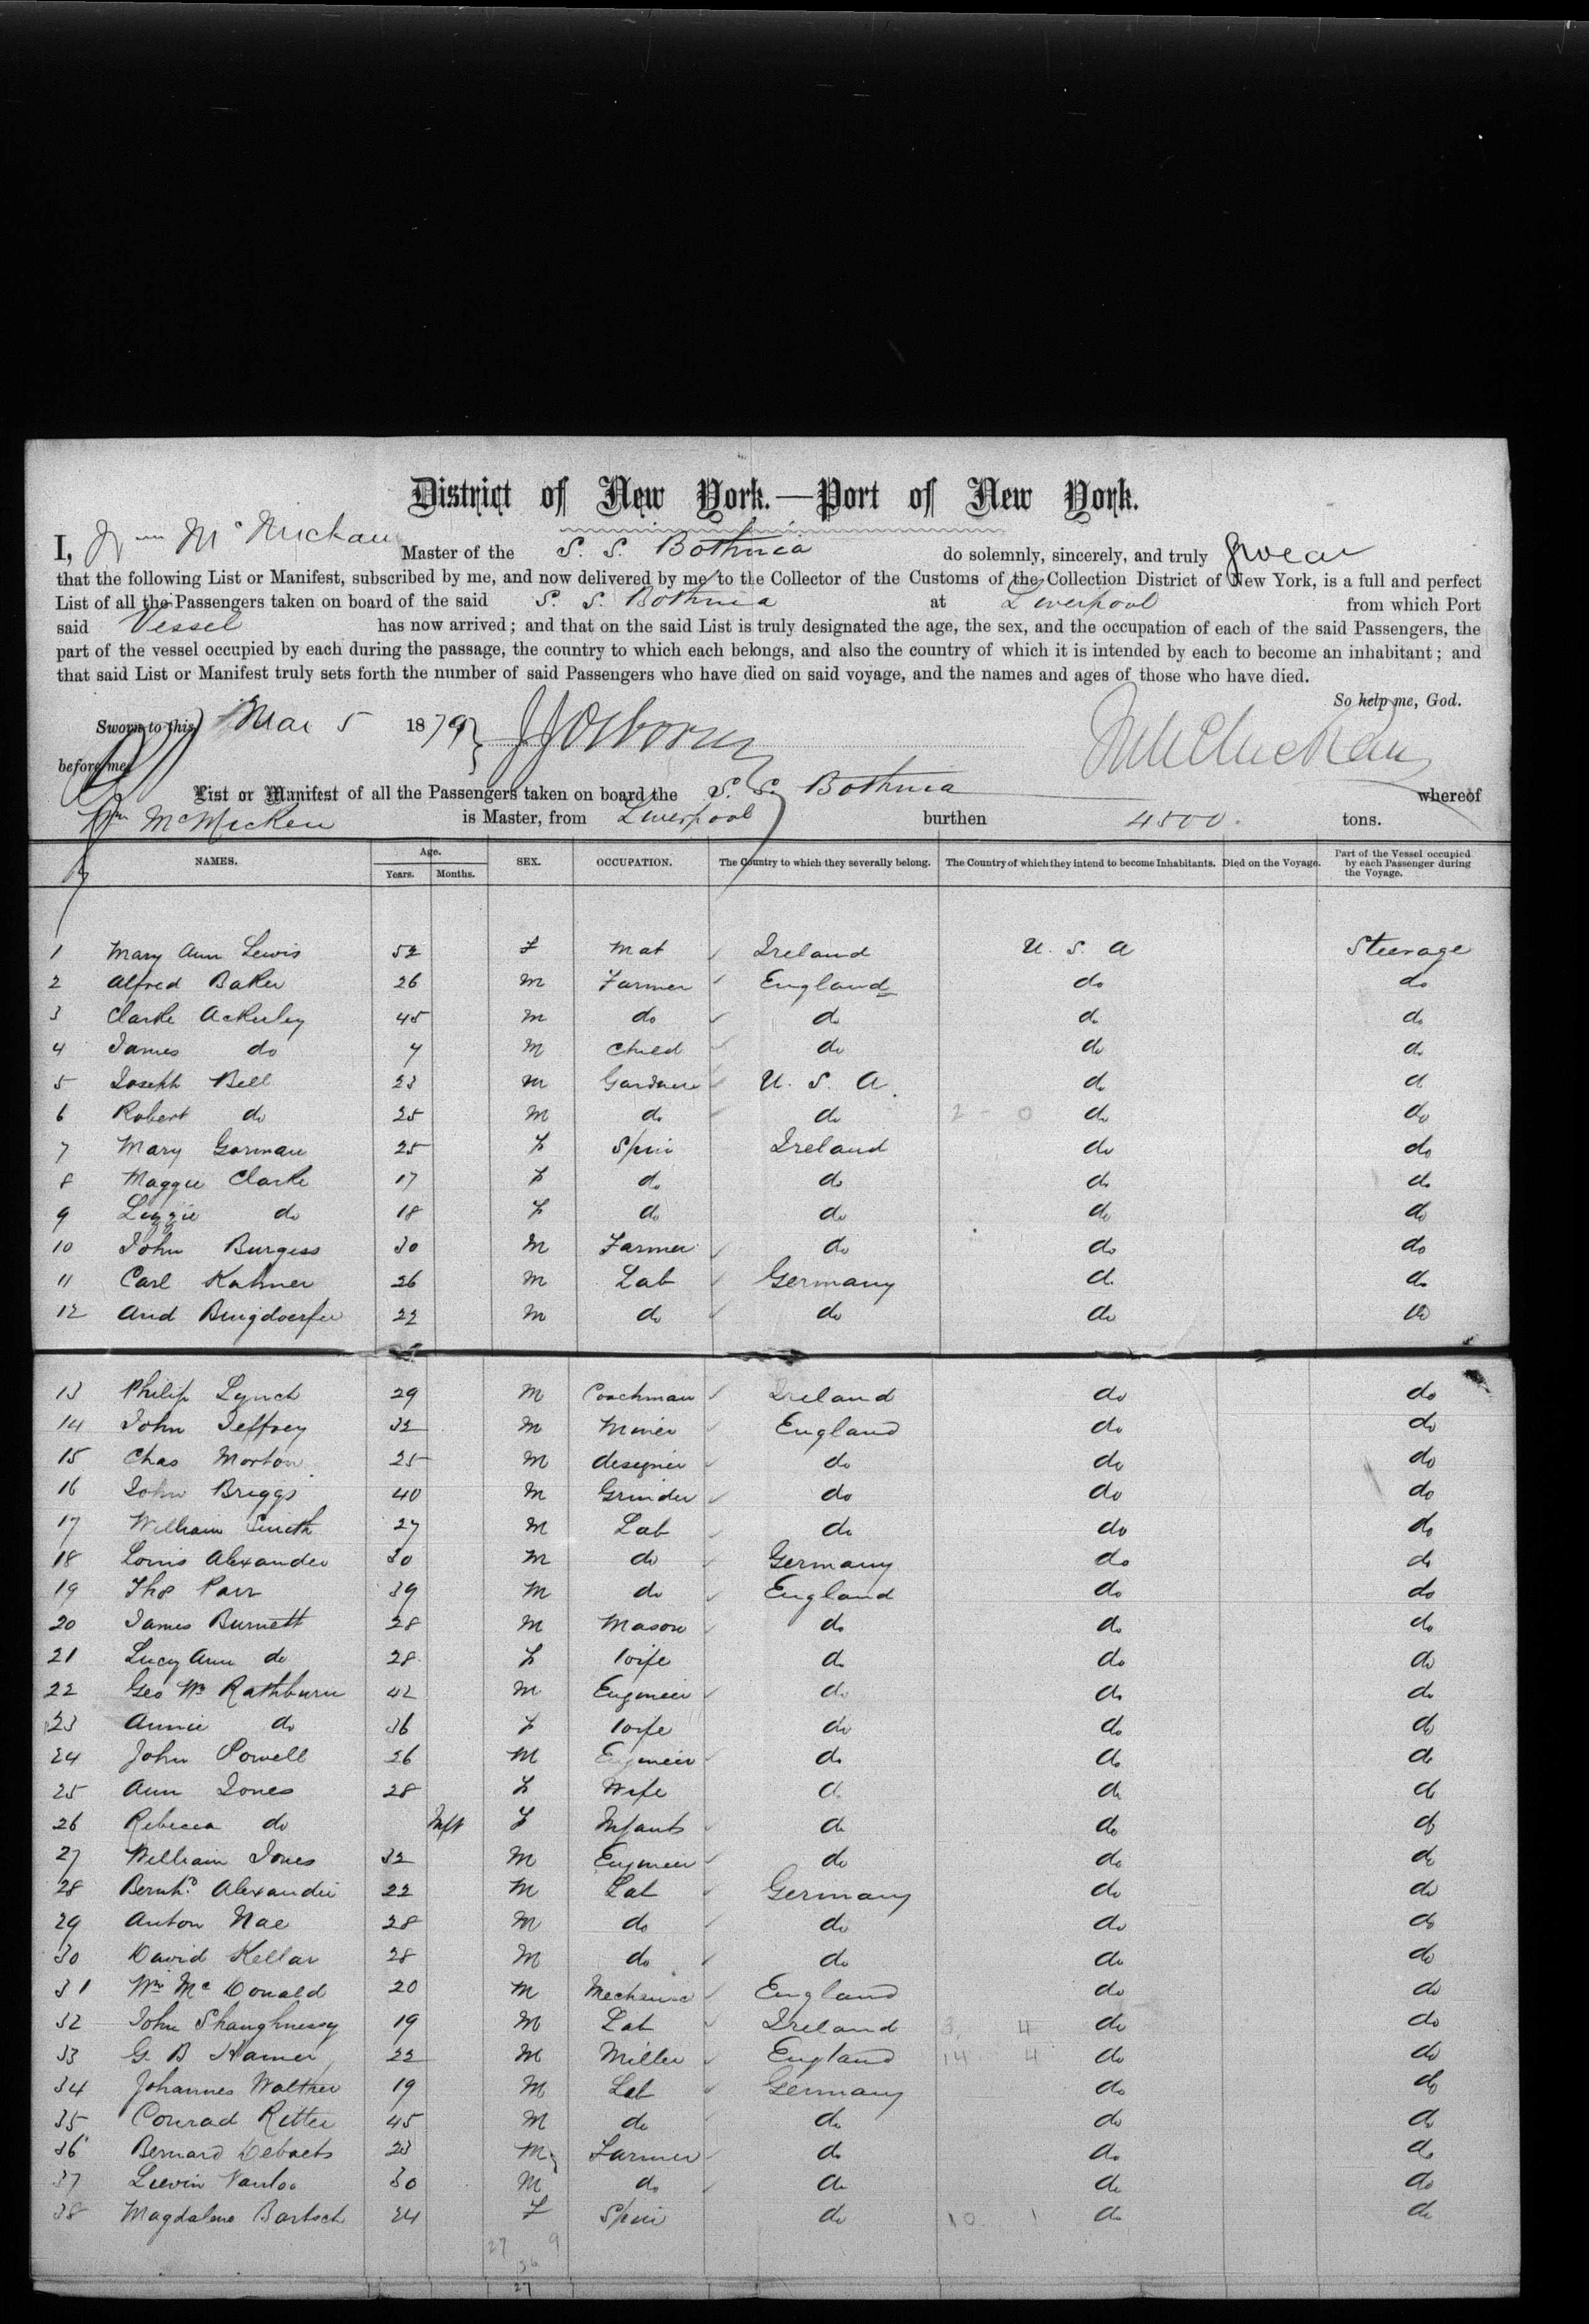 District of New York.—Port of New York.
I, Wm McMickan Master of the S. S. Bothnia do solemnly, sincerely, and truly swear
that the following List or Manifest, subscribed by me, and now delivered by me to the Collector of the Customs of the Collection District of New York, is a full and perfect
List of all the Passengers taken on board of the said S. S. Bothnia at Liverpool from which Port
said Vessel has now arrived; and that on the said List is truly designated the age, the sex, and the occupation of each of the said Passengers, the
part of the vessel occupied by each during the passage, the country to which each belongs, and also the country of which it is intended by each to become an inhabitant; and
that said List or Manifest truly sets forth the number of said Passengers who have died on said voyage, and the names and ages of those who have died.
So help me, God.
Sworn to this Mar 5 1879
before me
List or Manifest of all the Passengers taken on board the S. S. Bothnia whereof
Wm McMicken is Master, from Liverpool burthen 4500 tons.
NAMES. Age. Years. Months. SEX. OCCUPATION. The Country to which they severally belong. The Country of which they intend to become Inhabitants. Died on the Voyage. Part of the Vessel occupied by each Passenger during the Voyage.
1 Mary Ann Lewis 52 F Mat Ireland U. S. A Steerage
2 Alfred Baker 26 M Farmer England do do
3 Clarke Ackerley 45 M do do do do
4 James do 7 M Child do do do
5 Joseph Bell 23 M Gardner U. S. A. do do
6 Robert do 25 M do do do do
7 Mary Gorman 25 F Spin Ireland do do
8 Maggie Clarke 17 F do do do do
9 Lizzie do 18 F do do do do
10 John Burgess 30 M Farmer do do do
11 Carl Kahner 26 M Lab Germany do do
12 And 22 M do do do do
13 Philip Lynch 29 M Coachman Ireland do do
14 John Jeffrey 32 M Miner England do do
15 Chas Morton 25 M designer do do do
16 John Briggs 40 M Grinder do do do
17 William Smith 27 M Lab do do do
18 Louis Alexander 30 M do Germany do do
19 Thos Parr 39 M do England do do
20 James Burnett 28 M Mason do do do
21 Lucy Ann do 28 F Wife do do do
22 Geo Wm Rathburn 42 M Engineer do do do
23 Annie do 36 F Wife do do do
24 John Powell 26 M Engineer do do do
25 Ann Jones 28 F Wife do do do
26 Rebecca do Inft F Infants do do do
27 William Jones 32 M Engineer do do do
28 Bernhd Alexander 22 M Lab Germany do do
29 Anton Nae 28 M do do do do
30 David Kellar 28 M do do do do
31 Wm McDonald 20 M Mechanic England do do
32 John Shaughnessy 19 M Lab Ireland do do
33 G B Hamer 22 M Miller England do do
34 Johannes Walther 19 M Lab Germany do do
35 Conrad Ritter 45 M do do do do
36 Bernard Debaets 23 M Farmer do do do
37 Lievin Vanloo 30 M do do do do
38 Magdalena Bartsch 24 F Spin do do do
27 9
36
27